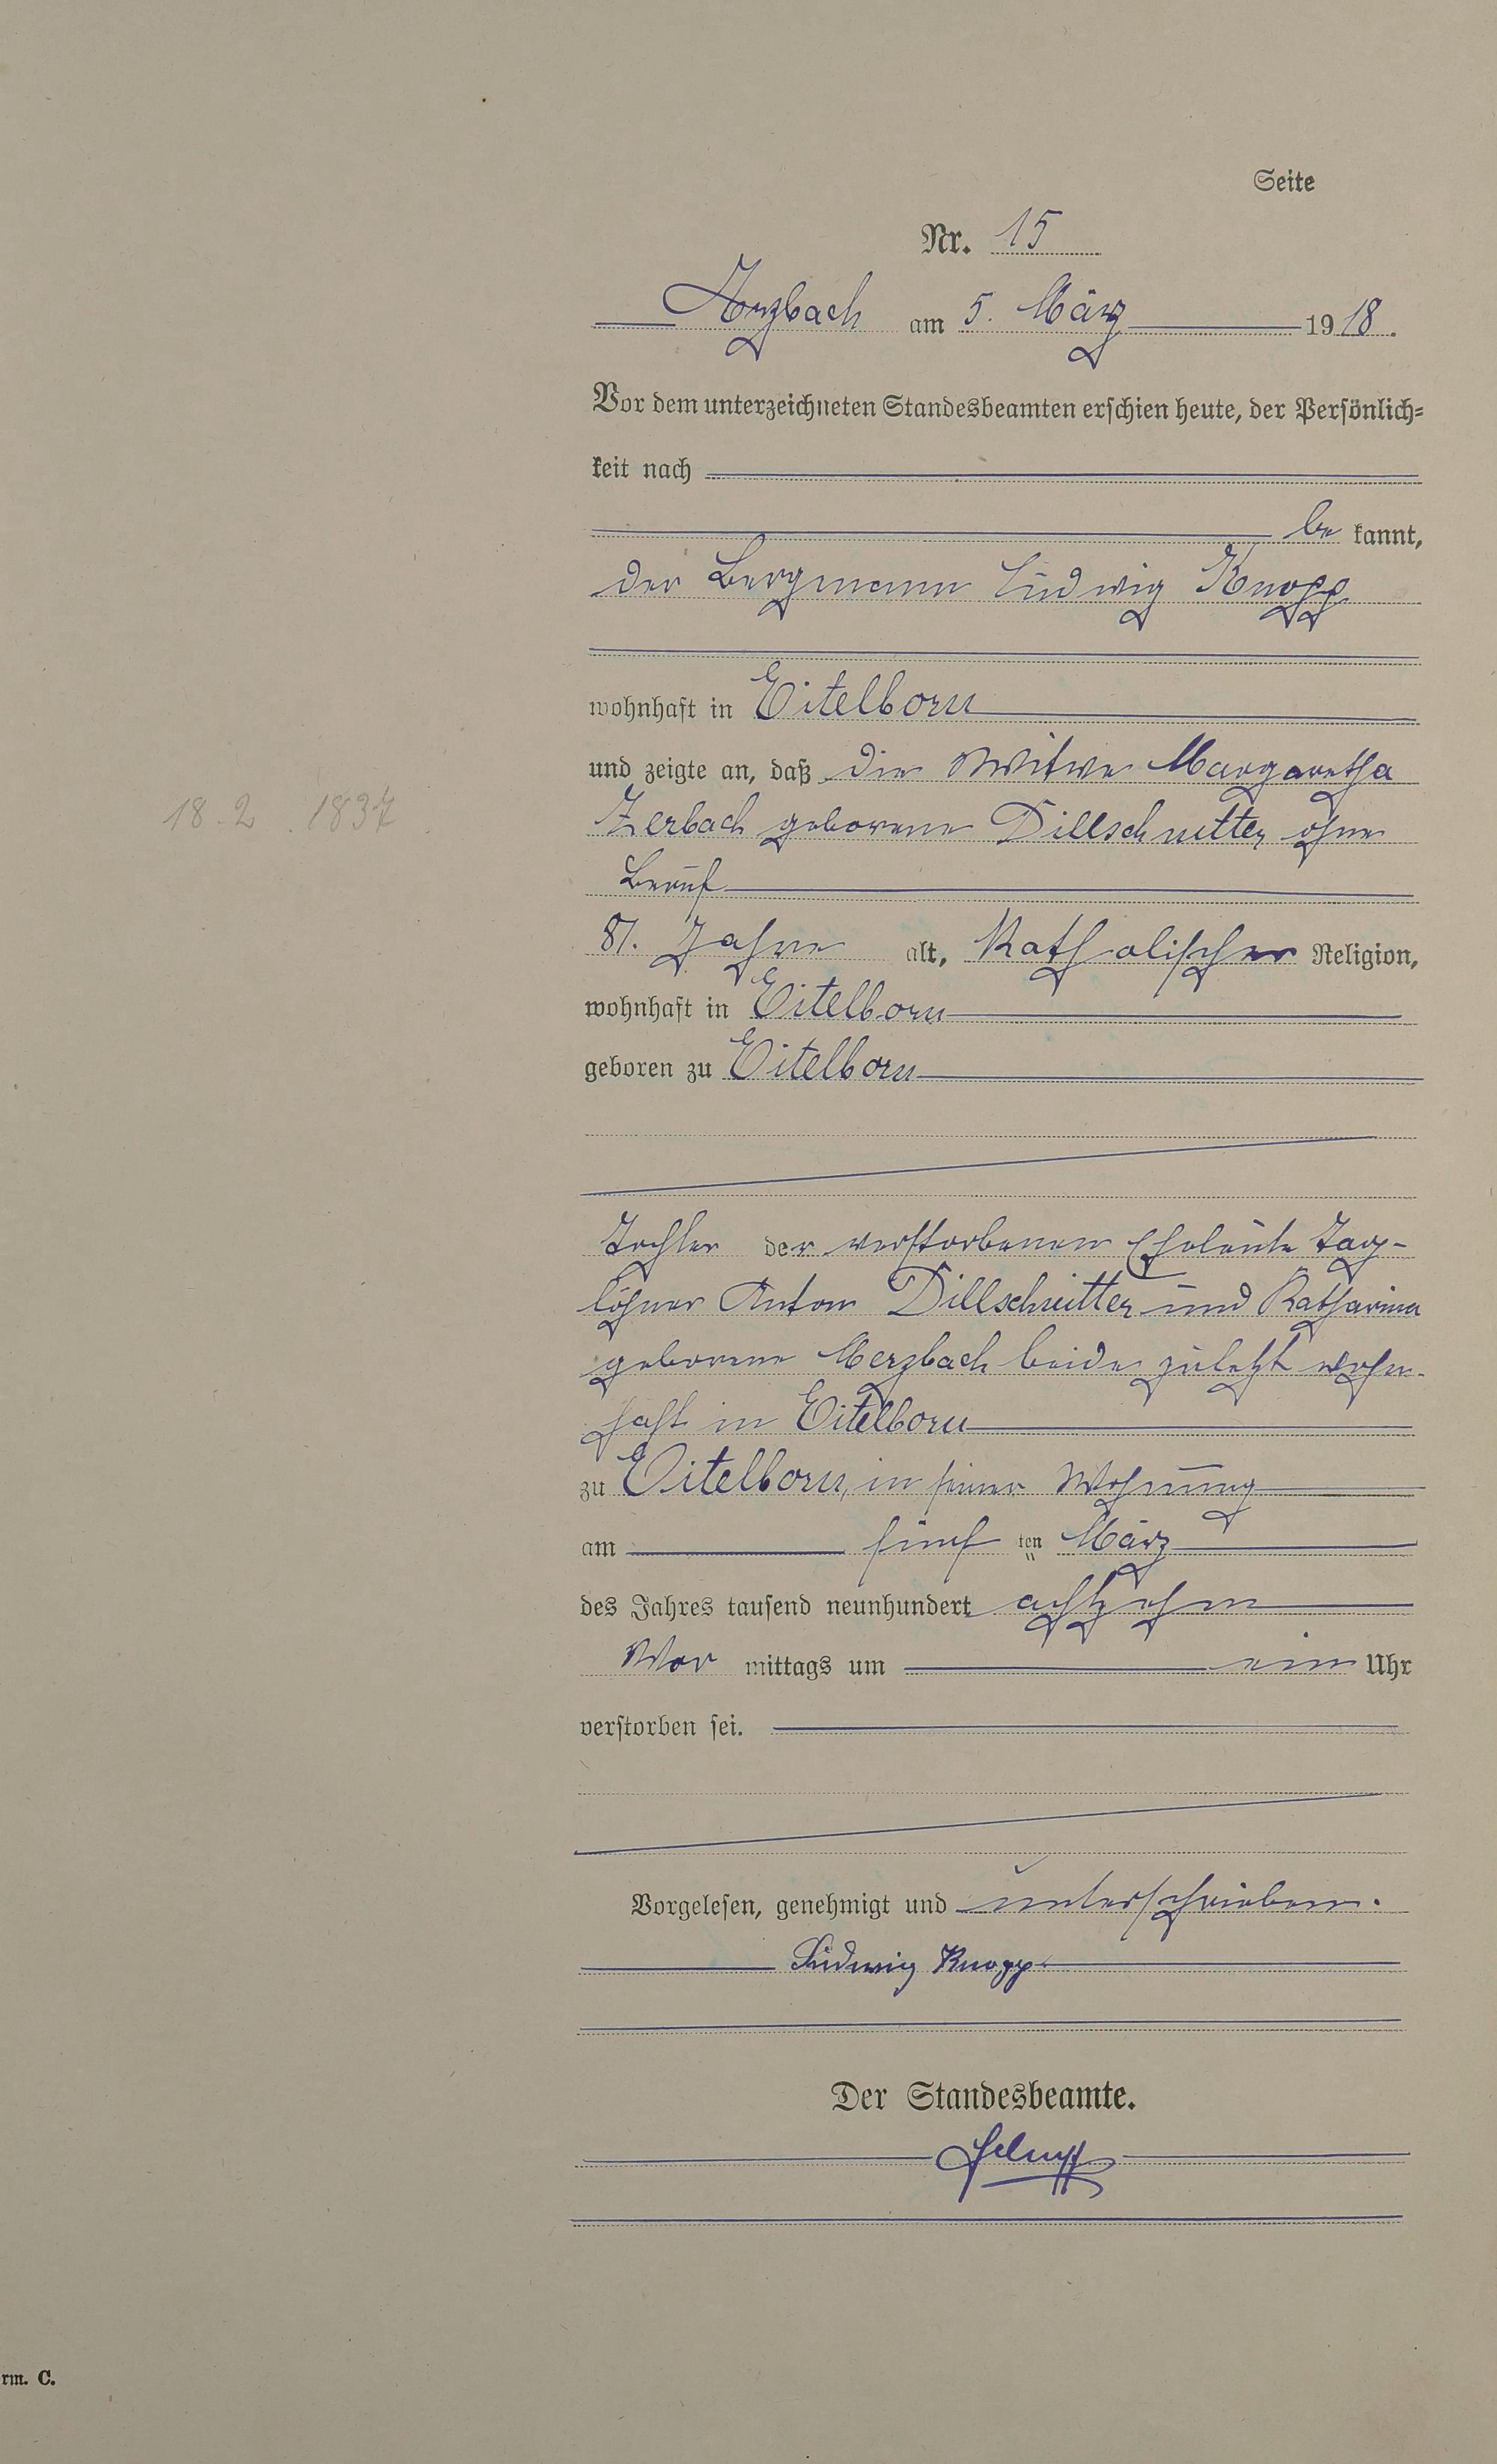 Seite
Nr. 15
Arzbach am 5. März 1918.
Vor dem unterzeichneten Standesbeamten erschien heute, der Persönlich=
keit nach
be kannt,
der Bergmann Ludwig Knopp
wohnhaft in Eitelborn
und zeigte an, daß die Witwe Margaretha
Zerbach geborene Dillschnitter, ohne
Beruf
81. Jahre alt, Katholischer Religion,
wohnhaft in Eitelborn
geboren zu Eitelborn
18.2.1837
Tochter der verstorbenen Eheleute Tag-
löhner Anton Dillschnitter und Katharina
geborene Merzbach beide zuletzt wohn-
haft in Eitelborn
zu Eitelborn, in seiner Wohnung
am fünf ten März
des Jahres tausend neunhundert achtzehn
Vor mittags um ein Uhr
verstorben sei.
Vorgelesen, genehmigt und unterschrieben.
Ludwig Knopp
Der Standesbeamte.
rm. C.